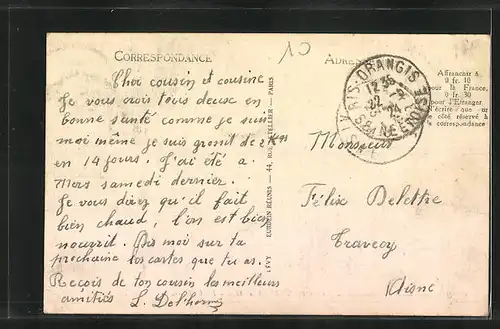 CORRESPONDANCE
Cher cousin et cousine
Je vous crois tous deux en
bonne santé comme je suis
moi même je suis grossit de 2 K
en 14 jours. J'ai été a
Mers samedi dernier.
Je vous dirai qu'il fait
bien chaud, l'on est bien
nourrit. Dis moi sur ta
prochaine les cartes que tu as.
Reçois de ton cousin les meilleurs
amitiés L. Delhomme
LÉVY EURDEIN RÉUNIS — 44, RUE LETELLIER — PARIS
ADRES
RIS-ORANGIS
SEINE ET OISE
Affranchir à
0 fr. 10
pour la France,
0 fr. 30
pour l'Étranger
côté réservé à
correspondance
Monsieur
Félix Delettre
Travecy
Aisne